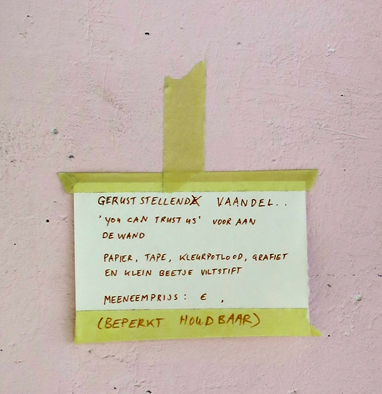 GERUST STELLEND VAANDEL..
'YOU CAN TRUST US' VOOR AAN
DE WAND
PAPIER, TAPE, KLEURPOTLOOD, GRAFIET
EN KLEIN BEETJE VILTSTIFT
MEENEEMPRIJS: € ,
(BEPERKT HOUDBAAR)